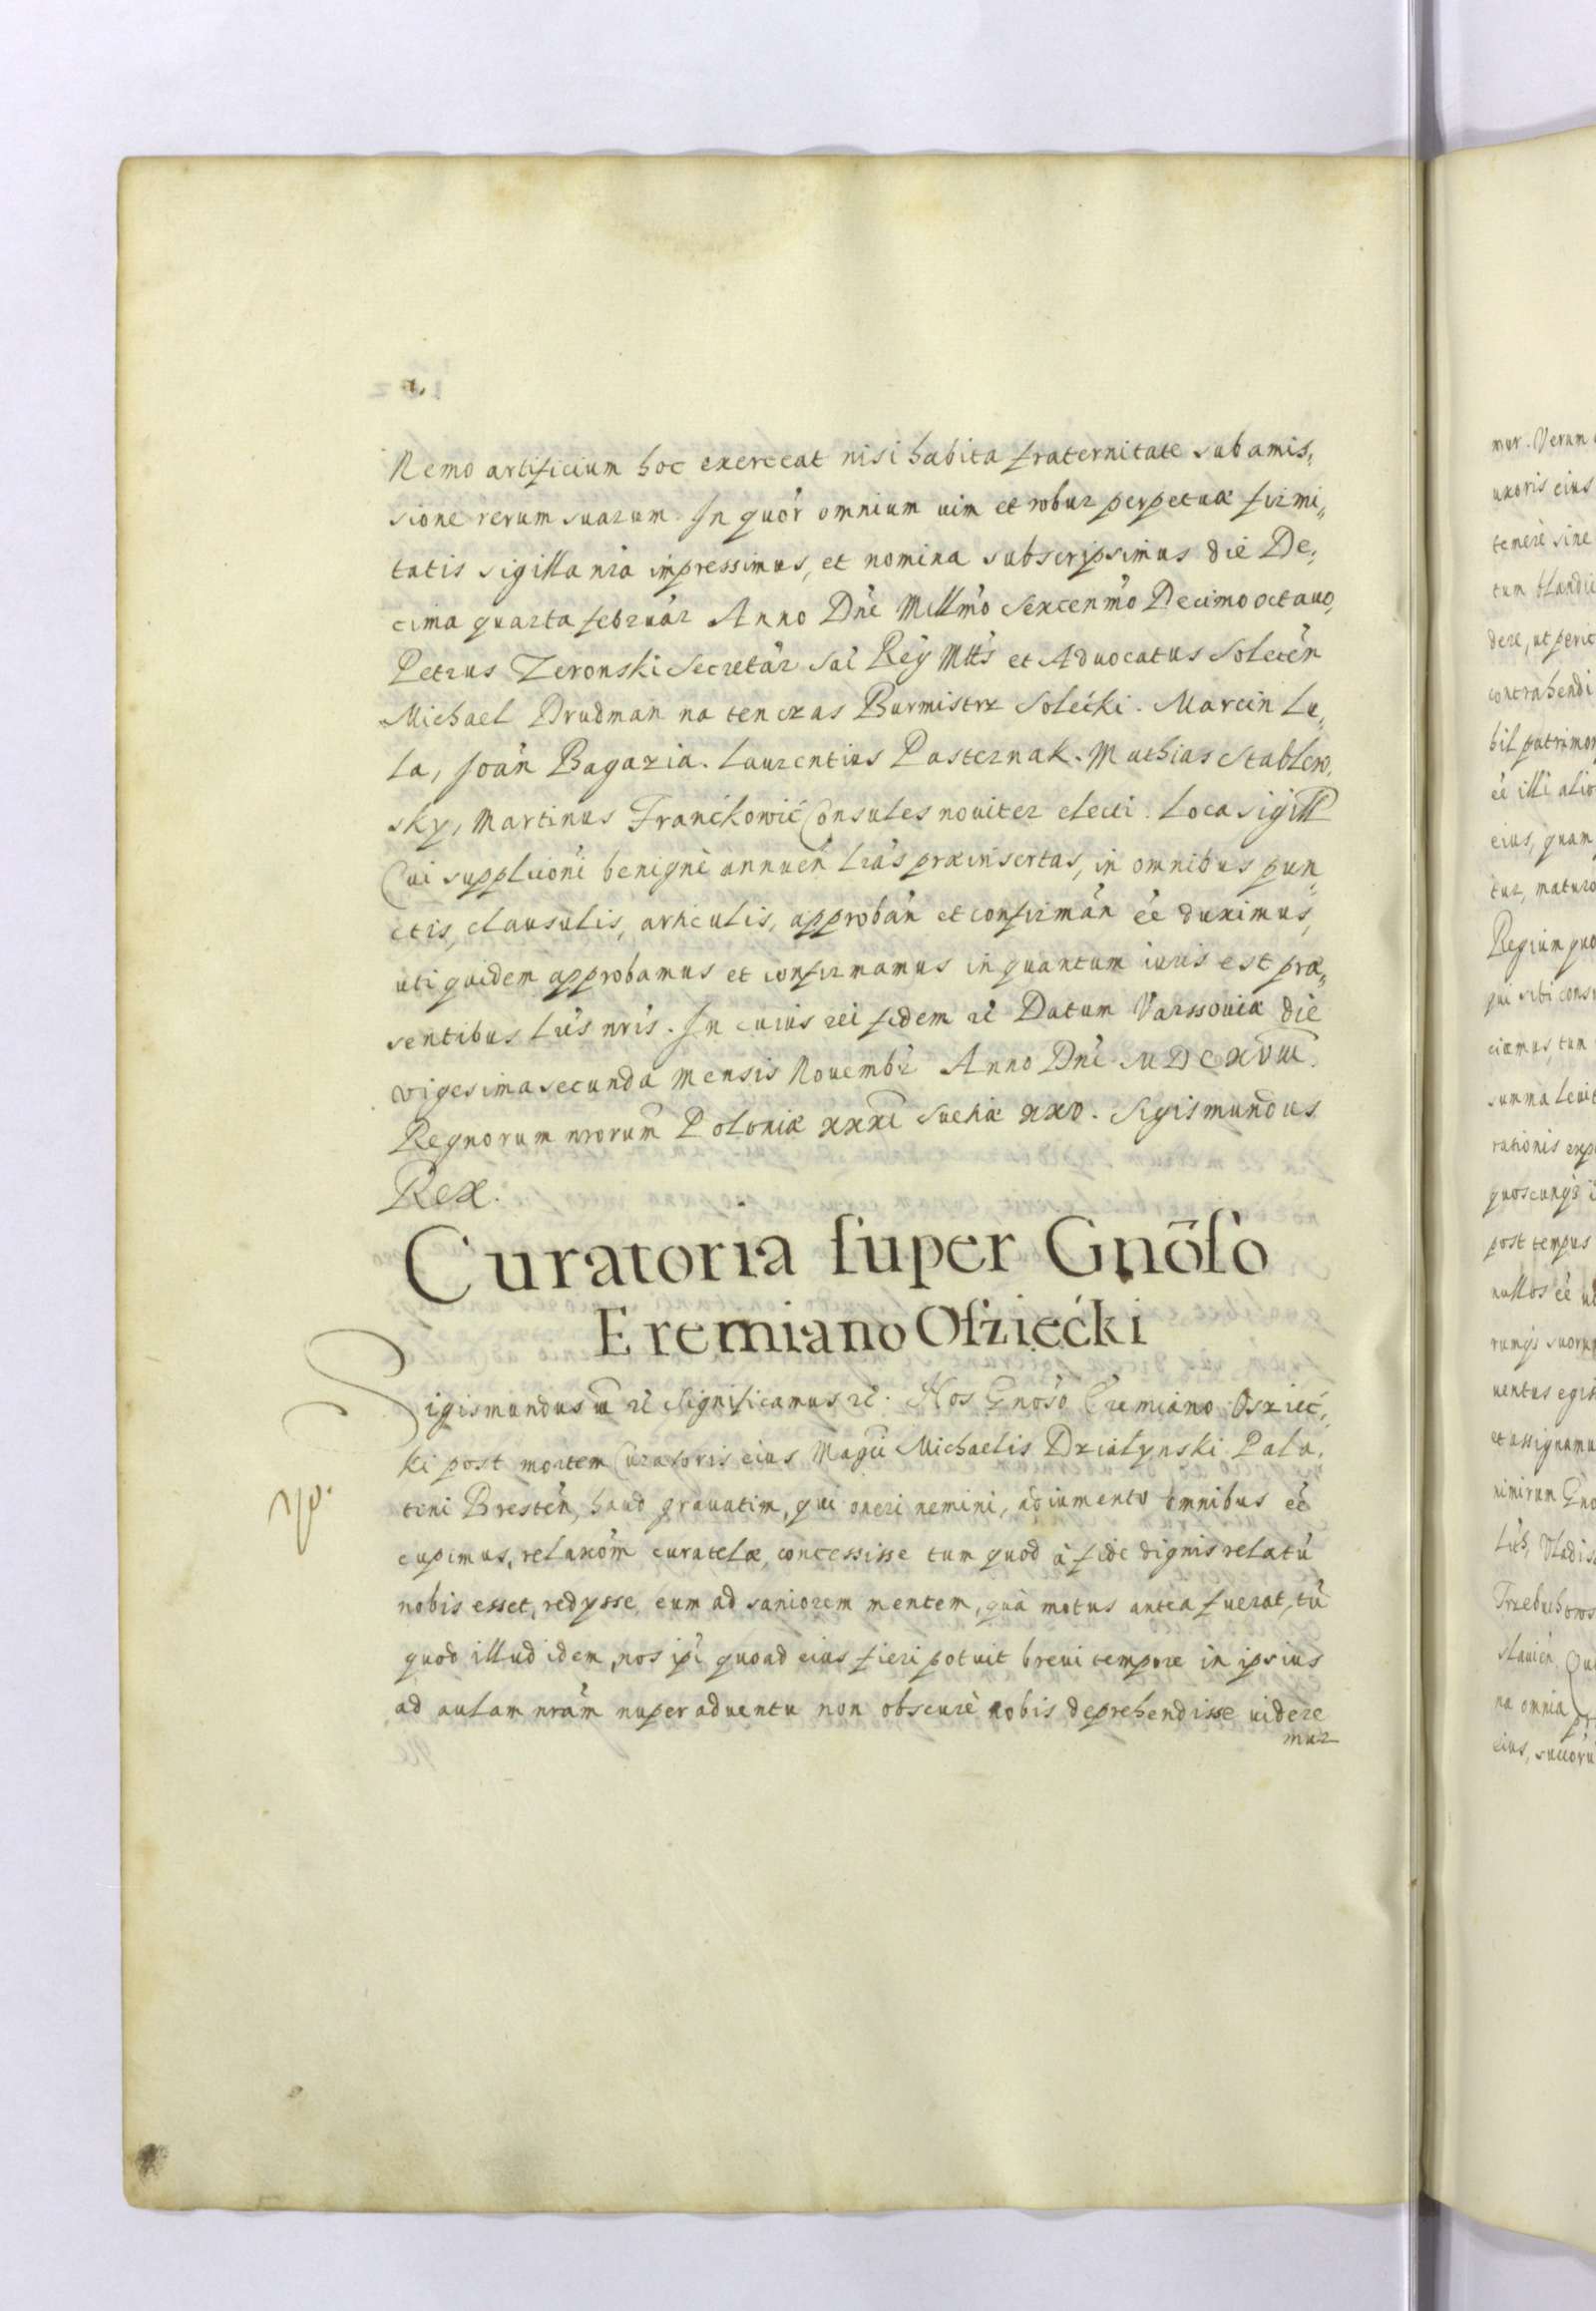 Nemo artificium hoc exerceat nisi habita fraternitate sub amis„
sione rerum suarum. In quor̄ omnium uim et robur perpetuæ firmi„
tatis sigilla nr̄a impressimus, et nomina subscripsimus die De„
cima quarta februār Anno Dn̄i Mill̄mo Sexcen̄mo Decimo octauo,
Petrus Zeronski Secretār Sac̄ Reg̈ Mtt̄s et Aduocatus Solecēn
Michael Drudman na ten czas Burmistrz Solećki. Marcin Lu„
la, Joān Bagazia. Laurentius Pasternak. Mathias Stablero„
sky, Martinus Franćkowić Consules nouiter electi. Loca sigill
Cui supplicion̄i benignè annuēn lr̄as præinsertas, in omnibus pun„
ctis, clausulis, articulis, approbān et confirmān ēē duximus,
uti quidem approbamus et confirmamus in quantum iuris est præ„
sentibus lr̄is nr̄is. In cuius rei fidem rc̄ Datum Varssouiæ die
vigesima secunda mensis Nouembr̄ Anno Dn̄i MDCXVIII.
Regnorum nrorum Poloniæ XXXI Sueciæ XXV. Sigismundus
Rex.
Curatoria super Gnōso
Eremiano Osziećki
Sigismundus III rc̄ Significamus rc̄. Nos Gnōso Eremiano Osziec„
ki post mortem Curatoris eius Magci Michaelis Działynski Pala„
tini Brestēn, haud grauatim, qui oneri nemini, adiumento omnibus ēē
cupimus, relaxōm curatelæ, concessisse tum quod à fide dignis relatū
nobis esset, redysse eum ad saniorem mentem, quà motus anteà fuerat, tū
quod illud idem, nos ip̄i quoad eius fieri potuit breui tempore in ipsius
ad aulam nrām nuper aduentu non obscurè nobis deprehendisse uidere
mur
mur. Verum
uxoris eius
temerè sine
dere, ut peric
contrahendi
bil patrimon
ēē illi alio
eius, quam
tur, maturo
Regium quo
qui sibi cons
ciemus, tum
summa leuit
rationis exp
post tempus
nullos ēē
et assignamu
nimirum Gno
na omnia